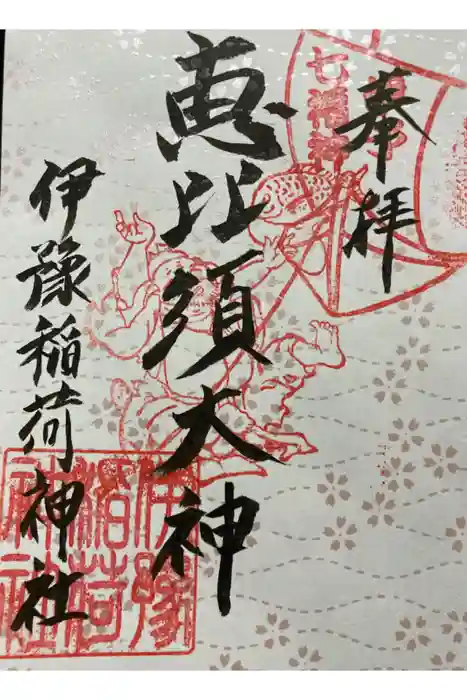 奉拝
七福神
恵比須大神
伊豫稲荷神社
伊豫
稲荷
神社